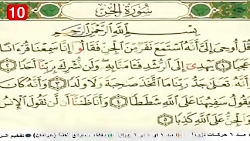 10
سُورَةُ الْجِنِّ
بِسْمِ اللَّهِ الرَّحْمَٰنِ الرَّحِيمِ
قُلْ أُوحِيَ إِلَيَّ أَنَّهُ اسْتَمَعَ نَفَرٌ مِنَ الْجِنِّ فَقَالُوا إِنَّا سَمِعْنَا قُرْآنًا
عَجَبًا يَهْدِي إِلَى الرُّشْدِ فَآمَنَّا بِهِ وَلَنْ نُشْرِكَ بِرَبِّنَا أَحَدًا
وَأَنَّهُ تَعَالَى جَدُّ رَبِّنَا مَا اتَّخَذَ صَاحِبَةً وَلَا وَلَدًا وَأَنَّهُ كَانَ
يَقُولُ سَفِيهُنَا عَلَى اللَّهِ شَطَطًا وَأَنَّا ظَنَنَّا أَنْ لَنْ تَقُولَ الْإِنْسُ
وَالْجِنُّ عَلَى اللَّهِ كَذِبًا